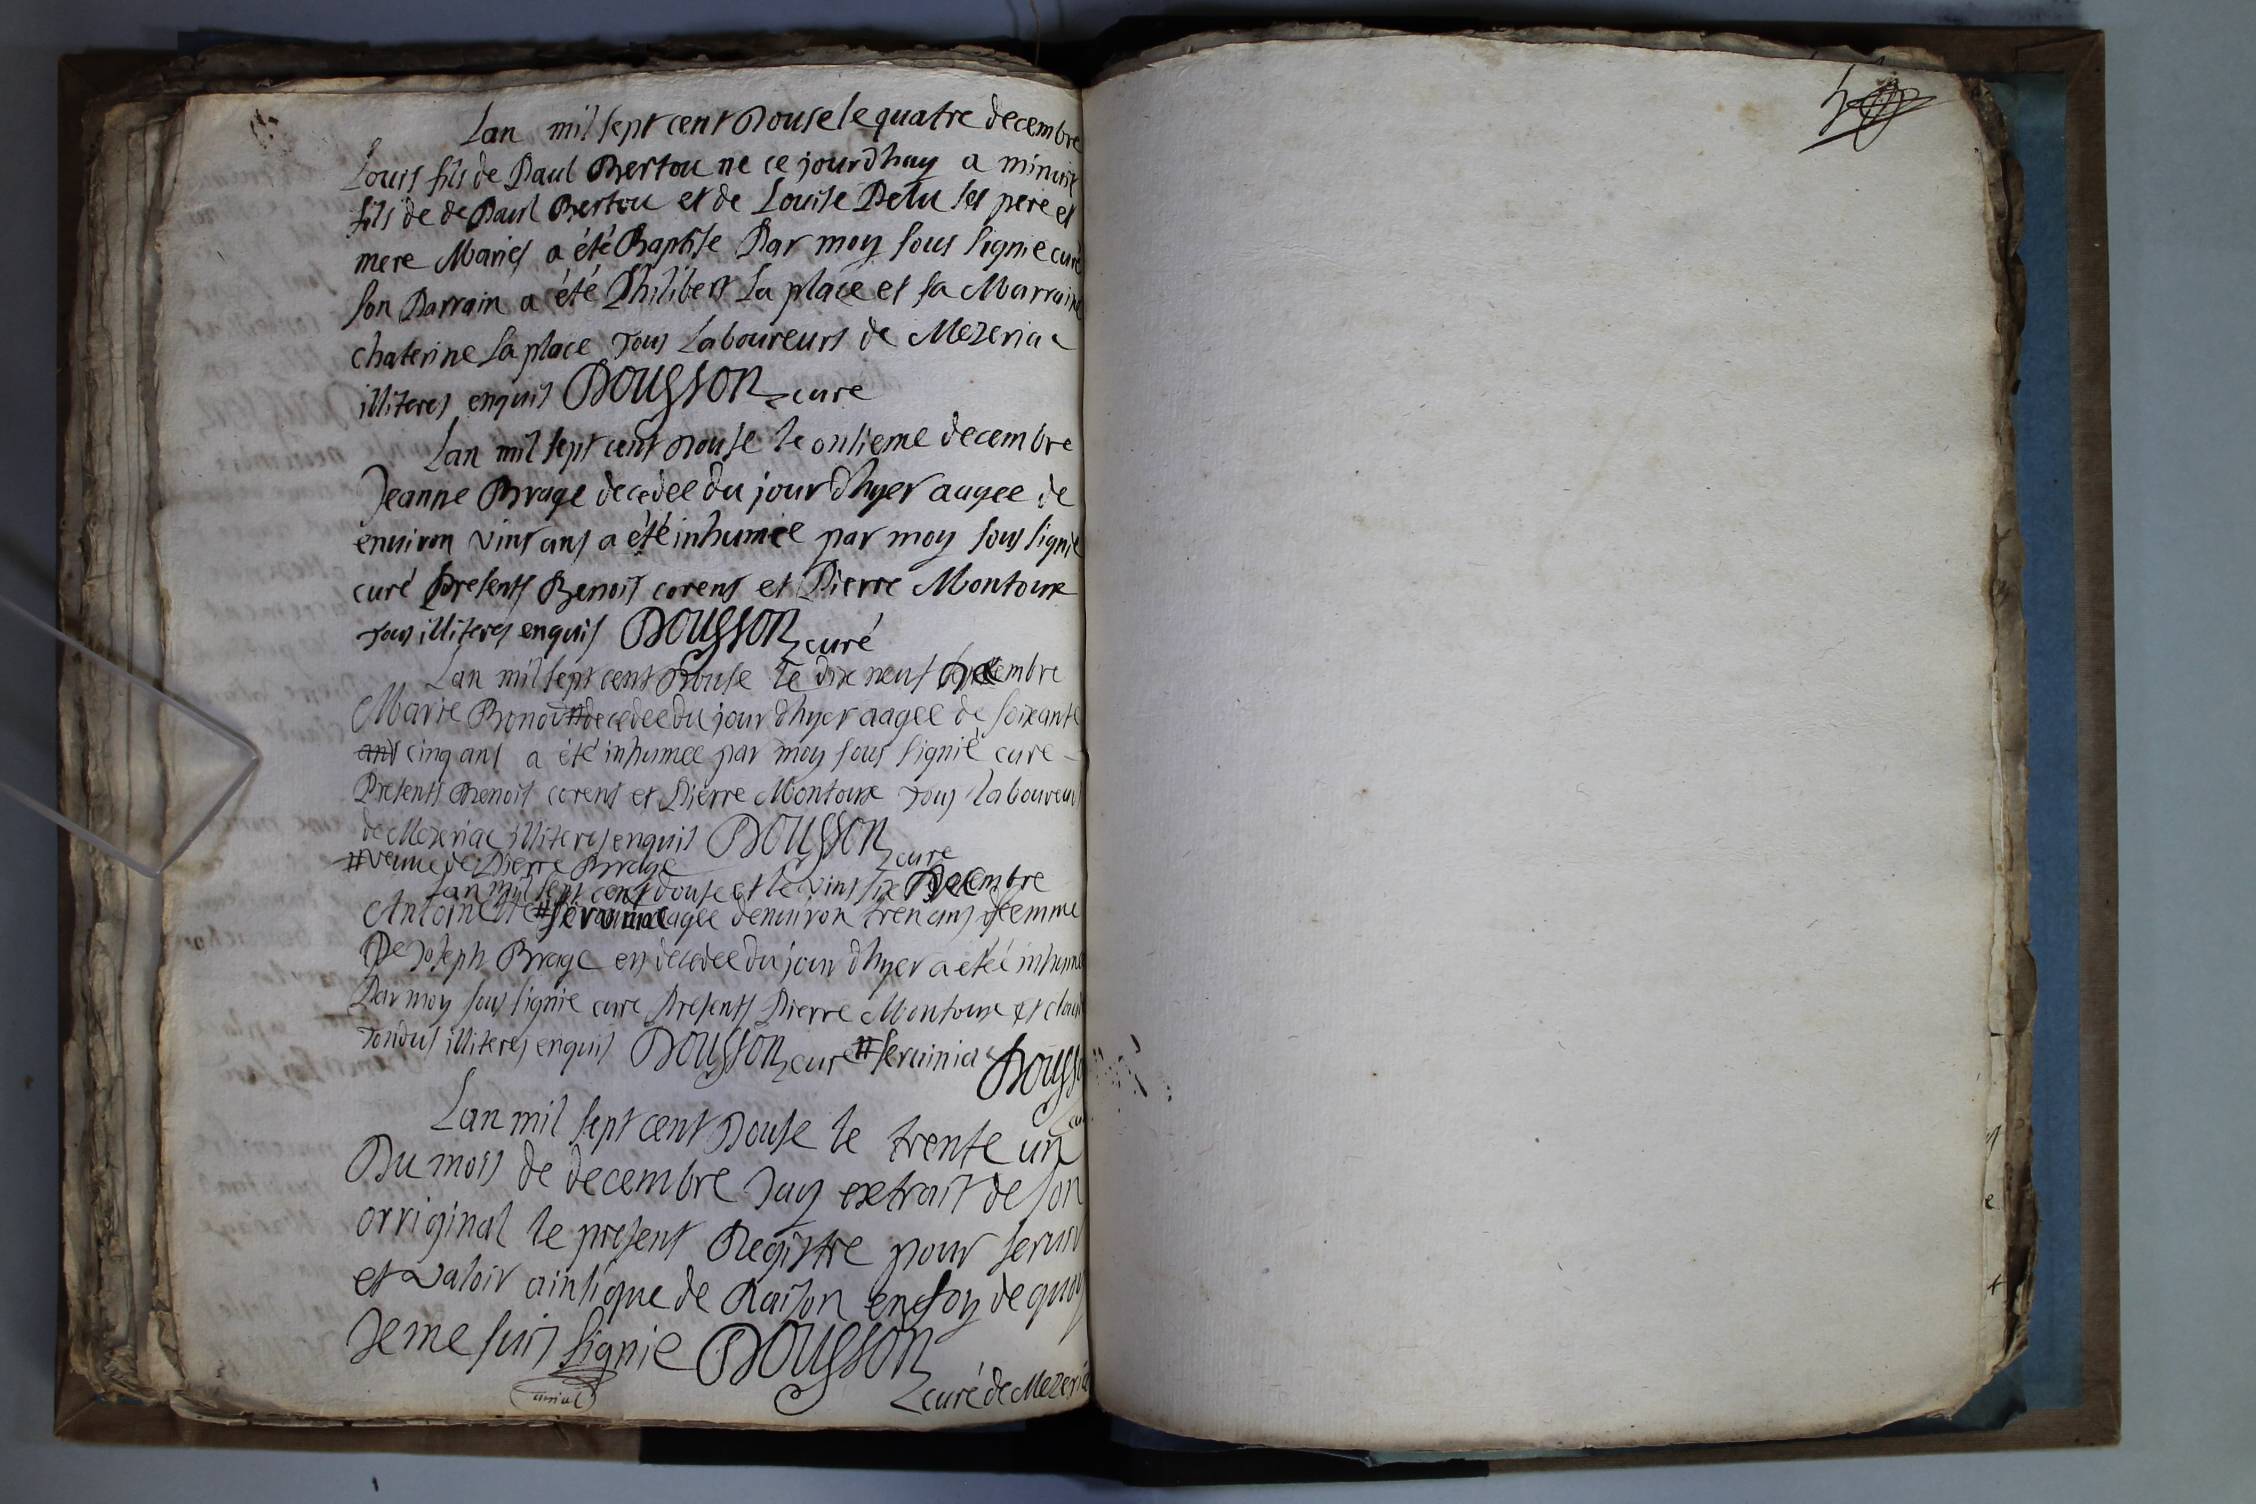 Lan mil sept cent Douse le quatre decembre
Louis fils de Paul Bertou ne ce jourdhuy a minuit
fils de de Paul Bertou et de Louise Petu ses pere et
mere Maries a été Baptise Par moy sous signie curé
son Parrain a été Philibert La place et sa Marraine
chaterine La place Tous Laboureurs de Mezeriac
illiteres enquis Dousson cure
Lan mil sept cent Douse le onsieme decembre
Jeanne Brage decedee du jour dhyer aagee de
environ vint ans a été inhumee par moy sous signie
curé Presents Benoit corent et Pierre Montoux
Tous illiteres enquis Dousson curé
Lan mil sept cent Douse le dix neuf Decembre
Marie # decedee du jour dhyer aagee de soixante
ans cinq ans a été inhumee par moy sous signié cure
Presents Benoit corent et Pierre Montoux Tous laboureurs
de Mezeriac illiteres enquis Dousson cure
# veuve de Pierre Brage
Lan mil sept cent douse et le vint six Decembre
Antoinette # aagee denviron tren ans femme
De Joseph Brage en decedee du jour dhyer a été inhumee
Par moy sous signie cure Presents Pierre Montoux et
Tondus illiteres enquis Dousson cure # Servinia Dousson
Lan mil sept cent Douse le trente un
Du mois de decembre Jay extrait de son
orriginal le present Registre pour servir
et valoir ainsique de Raison en foy de quoy
Jeme suis signie Dousson
curé de Mezeria